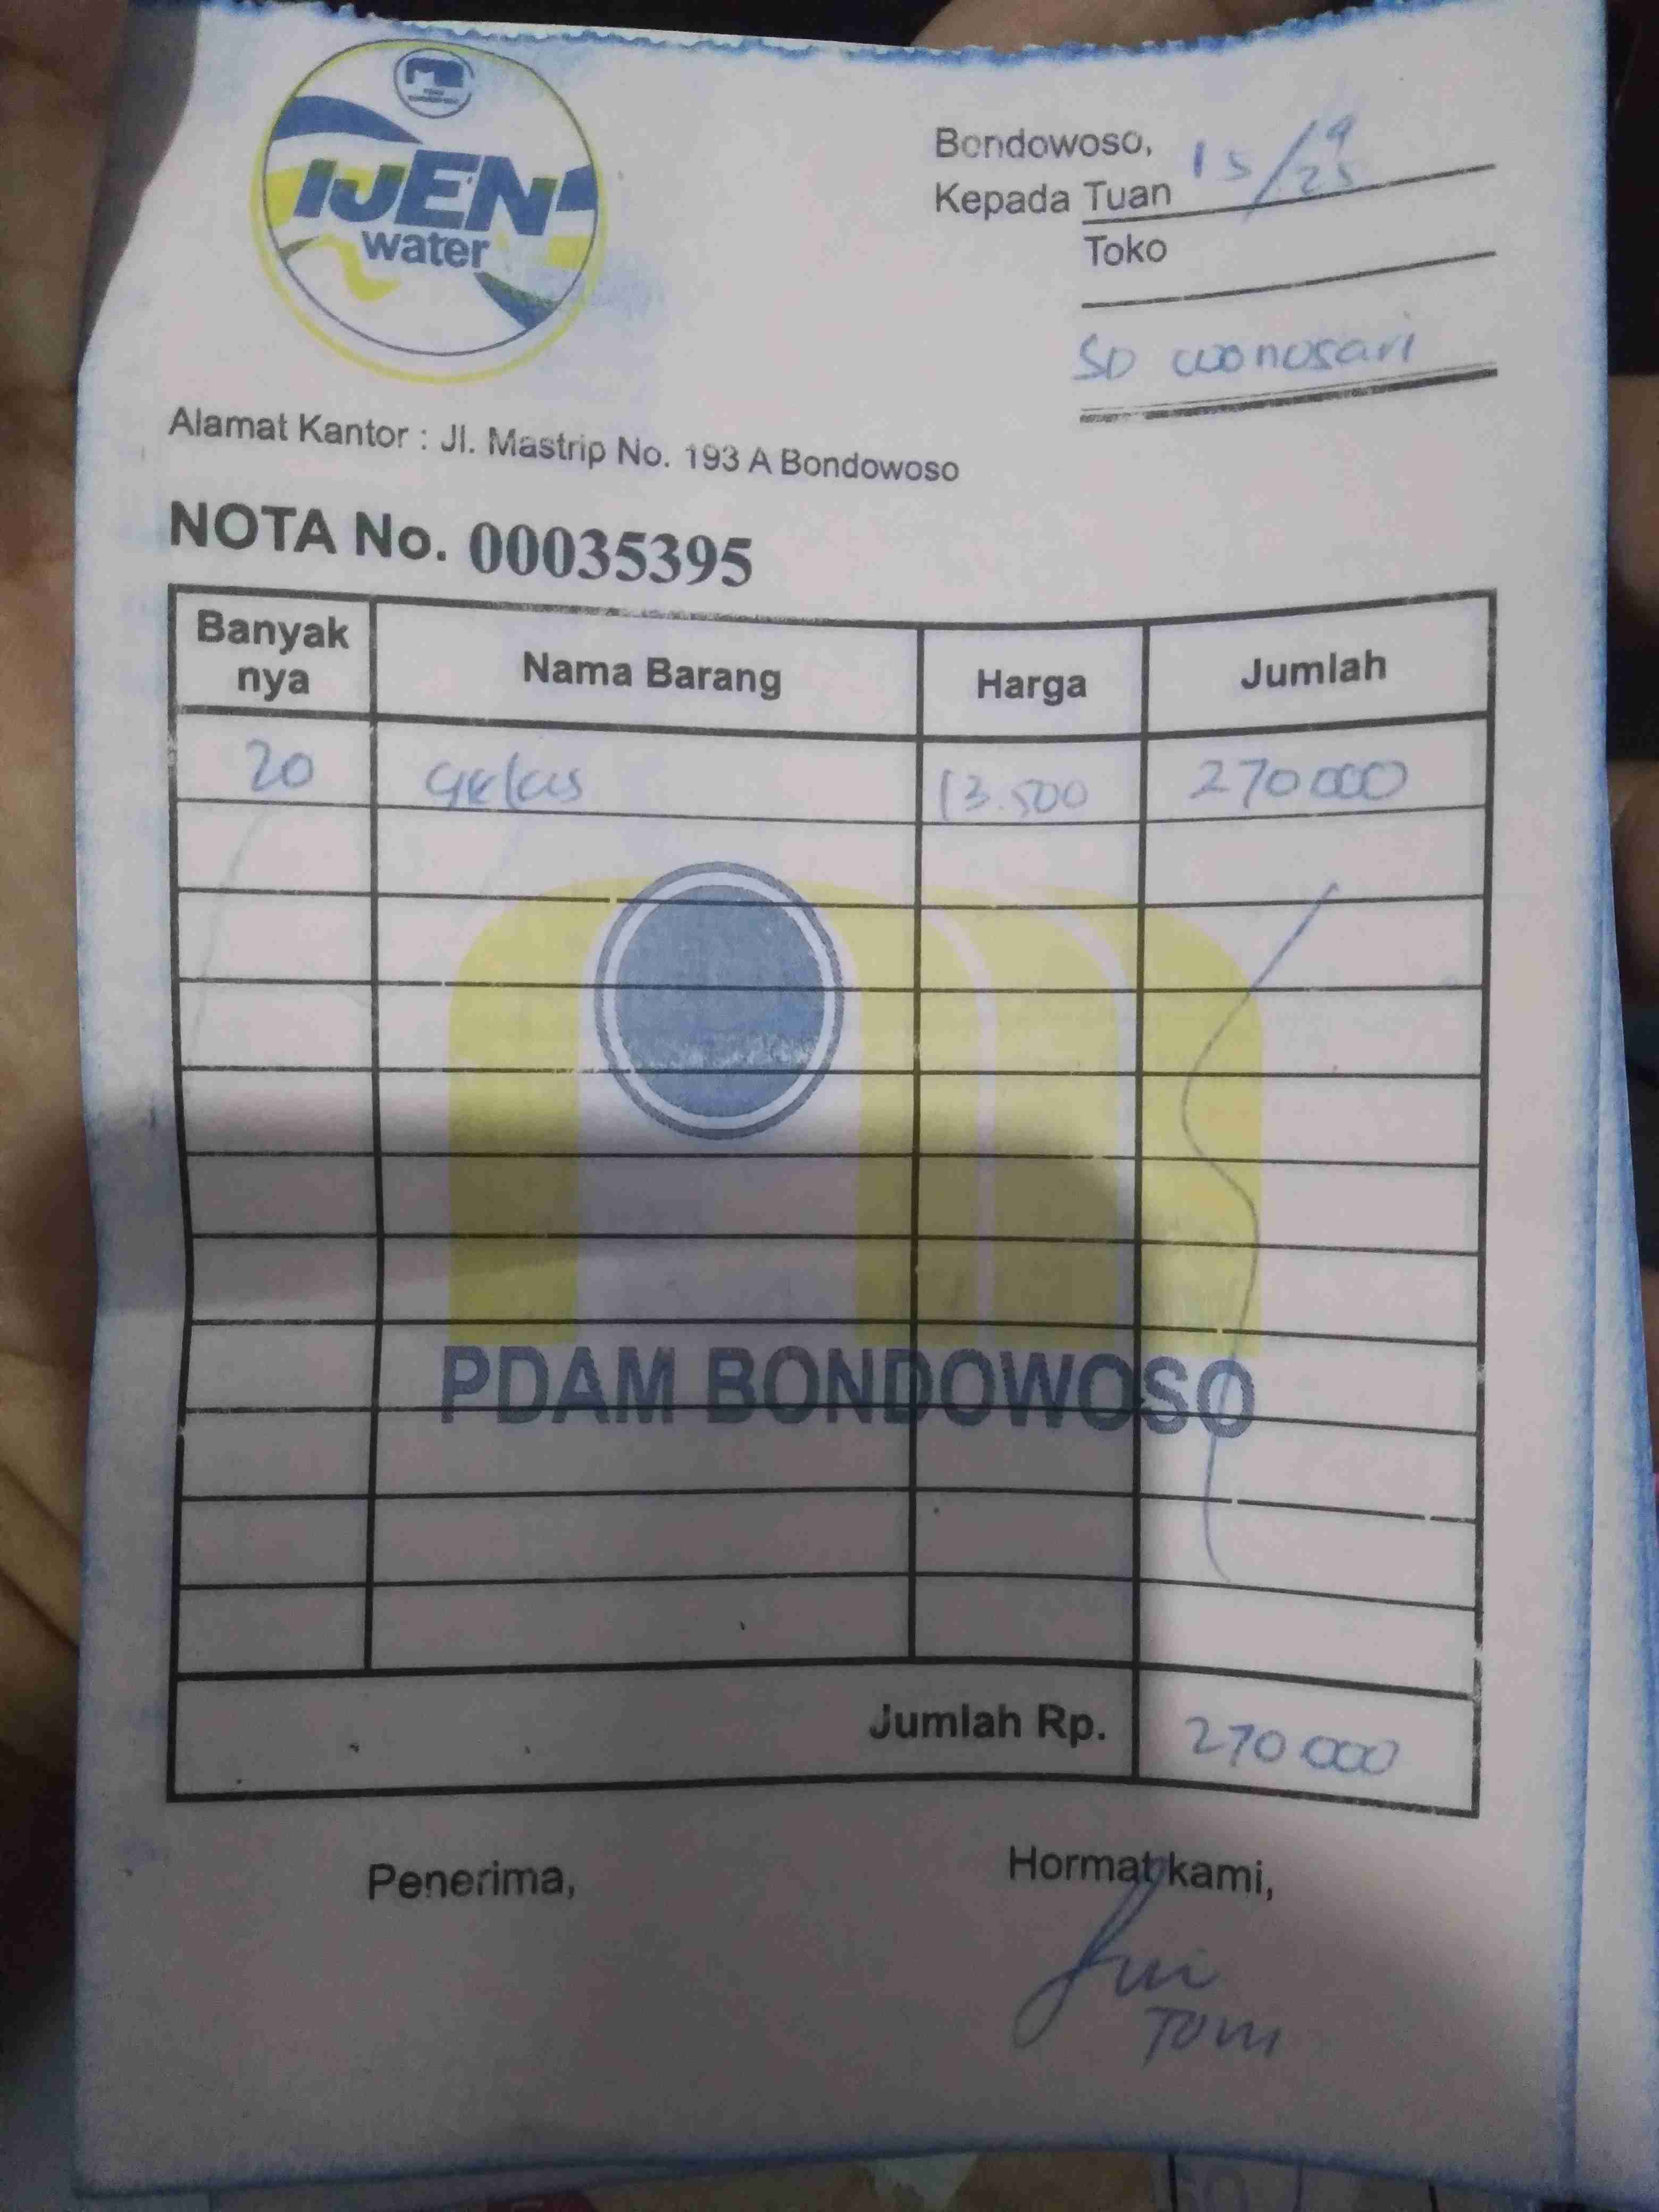 IJEN
water
Bondowoso, 15/9/25
Kepada Tuan
Toko
SD wonosari
Alamat Kantor : Jl. Mastrip No. 193 A Bondowoso
NOTA No. 00035395
Banyak nya Nama Barang Harga Jumlah
20 Gelas 13.500 270 000
PDAM BONDOWOSO
Jumlah Rp. 270 000
Penerima, Hormat kami,
Tom